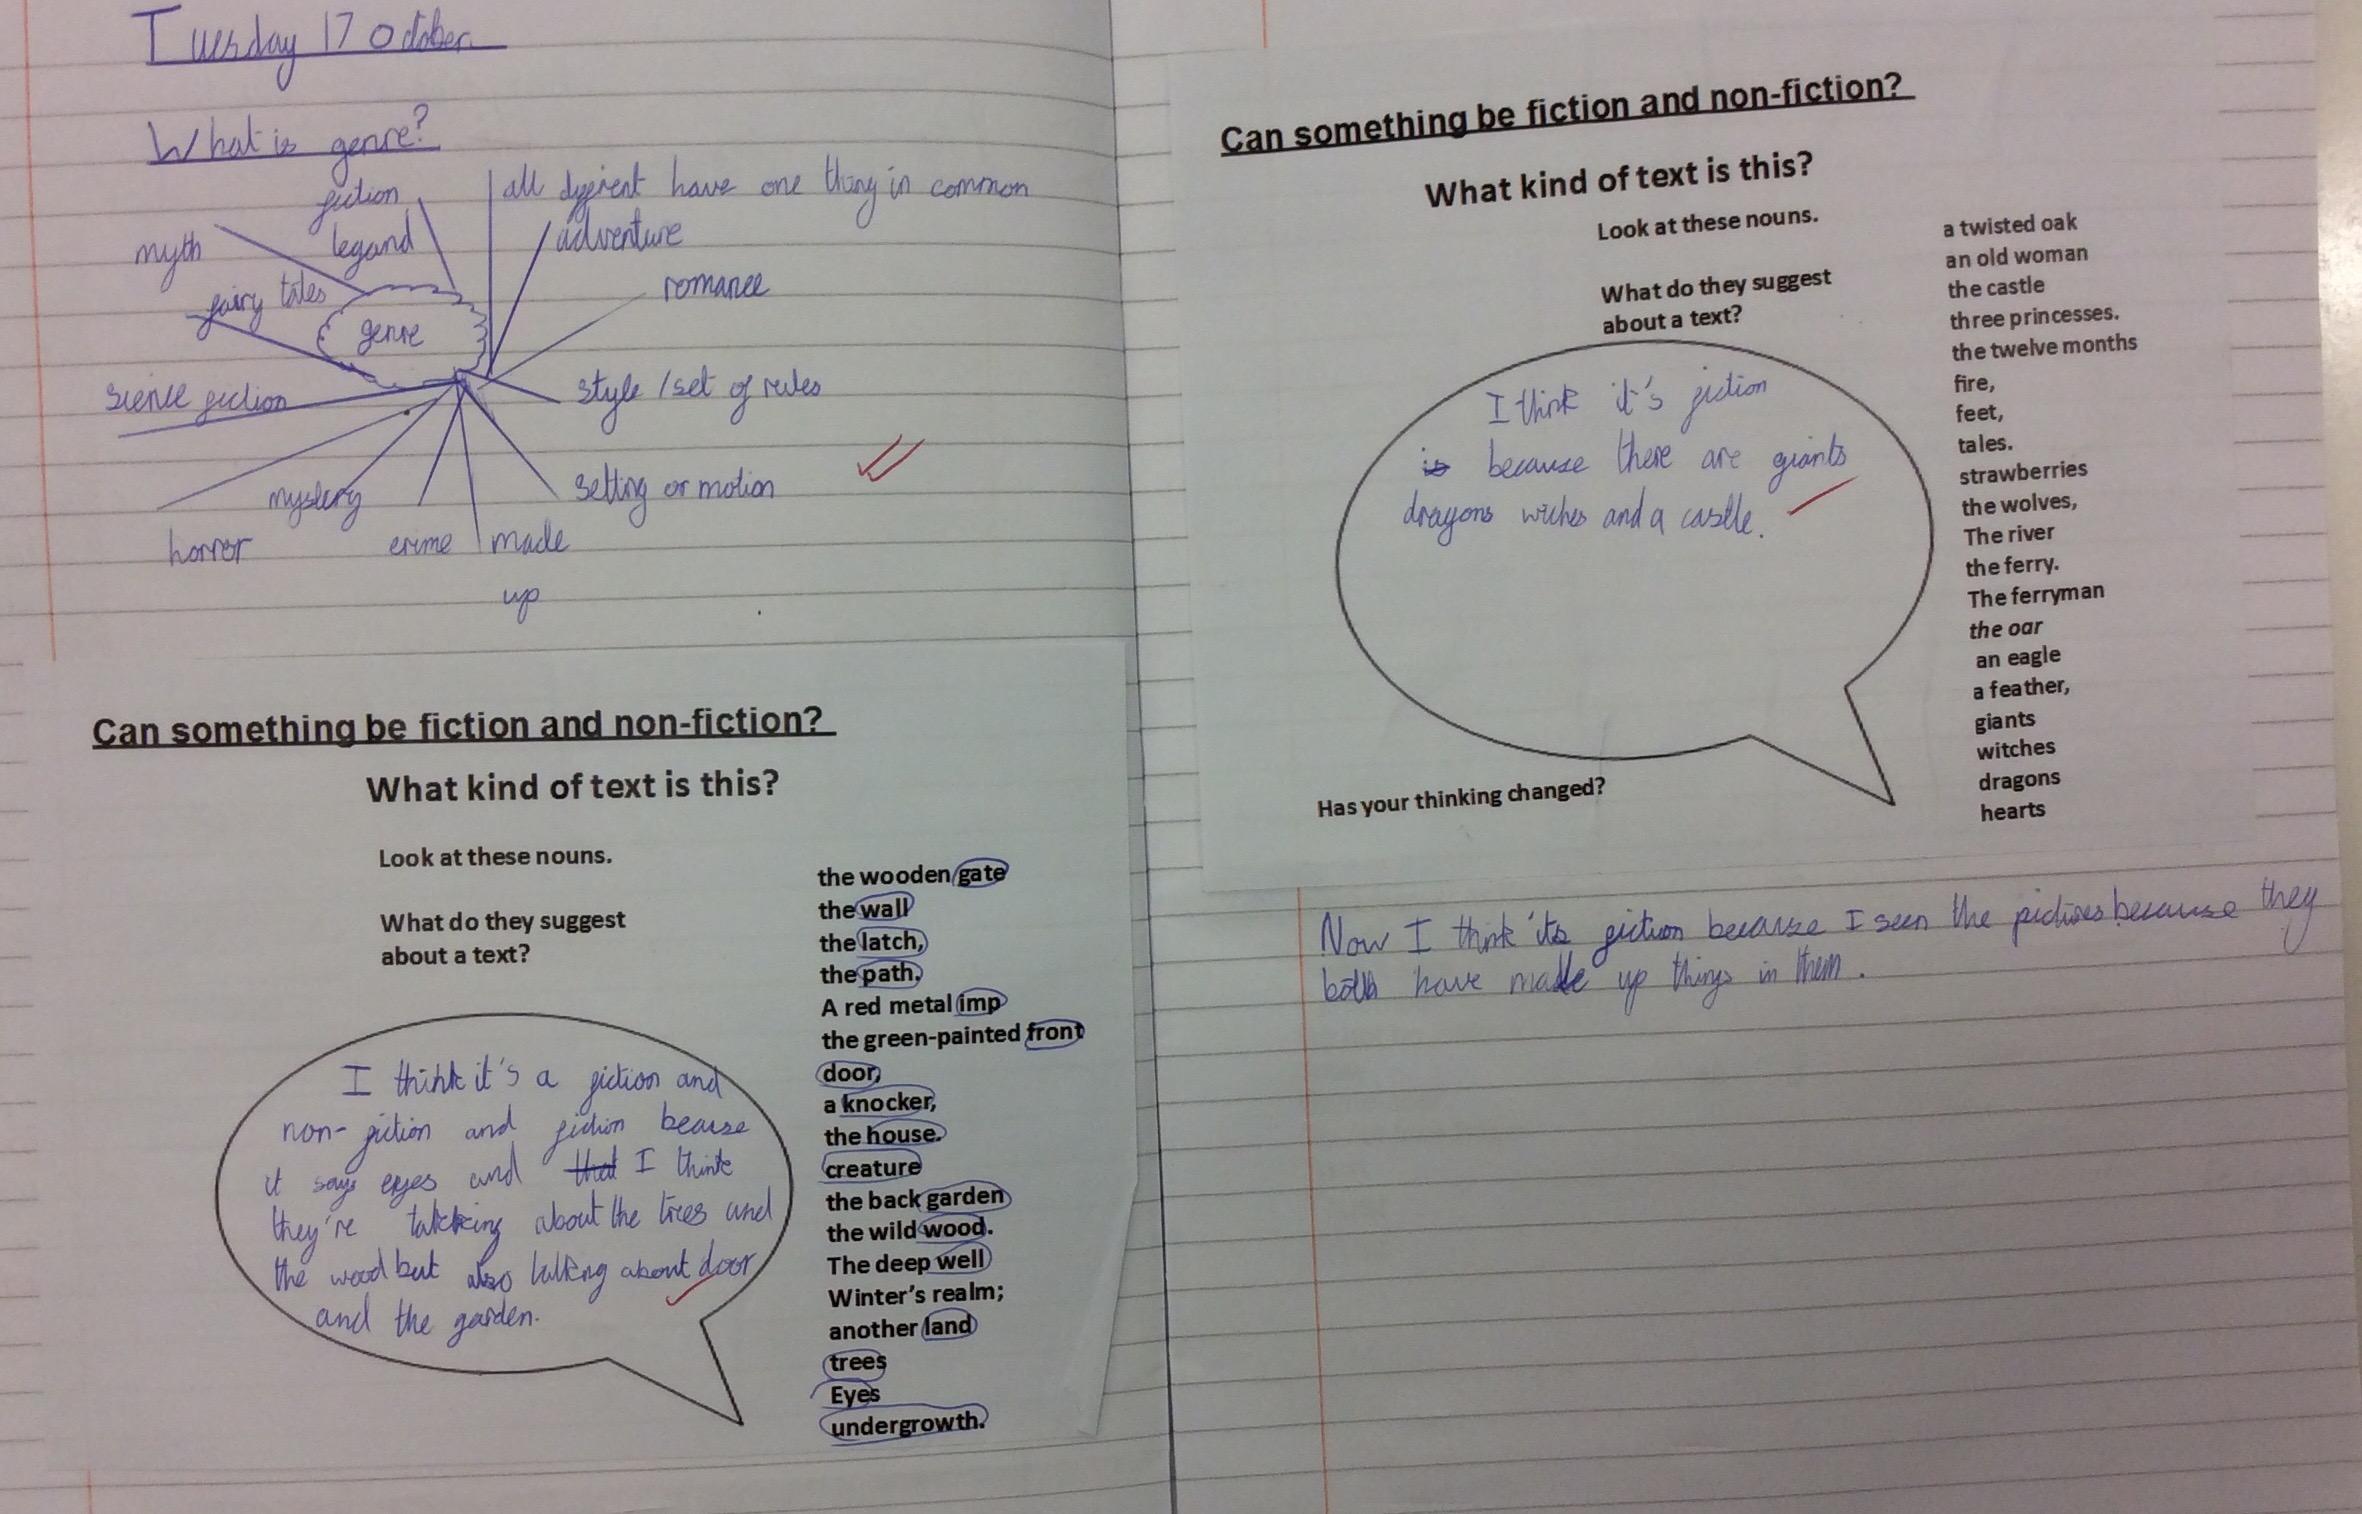 Tuesday 17 October
What is genre?
fiction
legand
all dyyirent have one thing in common
adventure
myth
romance
fairy tales
genre
sience fiction
style / set of rules
setting or motion
mystery
horror
crime
made
up
Can something be fiction and non-fiction?
What kind of text is this?
Look at these nouns.
What do they suggest
about a text?
I think it's a fiction and
non-fiction and fiction becarse
it says eyes and that I think
they're talking about the trees and
the wood but also talking about door
and the garden.
the wooden gate
the wall
the latch,
the path.
A red metal imp
the green-painted front
door,
a knocker,
the house.
creature
the back garden
the wild wood.
The deep well
Winter's realm;
another land
trees
Eyes
undergrowth.
Can something be fiction and non-fiction?
What kind of text is this?
Look at these nouns.
What do they suggest
about a text?
I think it's fiction
is because there are giants
dragons wiches and a castle.
Has your thinking changed?
a twisted oak
an old woman
the castle
three princesses.
the twelve months
fire,
feet,
tales.
strawberries
the wolves,
The river
the ferry.
The ferryman
the oar
an eagle
a feather,
giants
witches
dragons
hearts
Now I think its fiction because I seen the pictures because they
both have made up things in them.